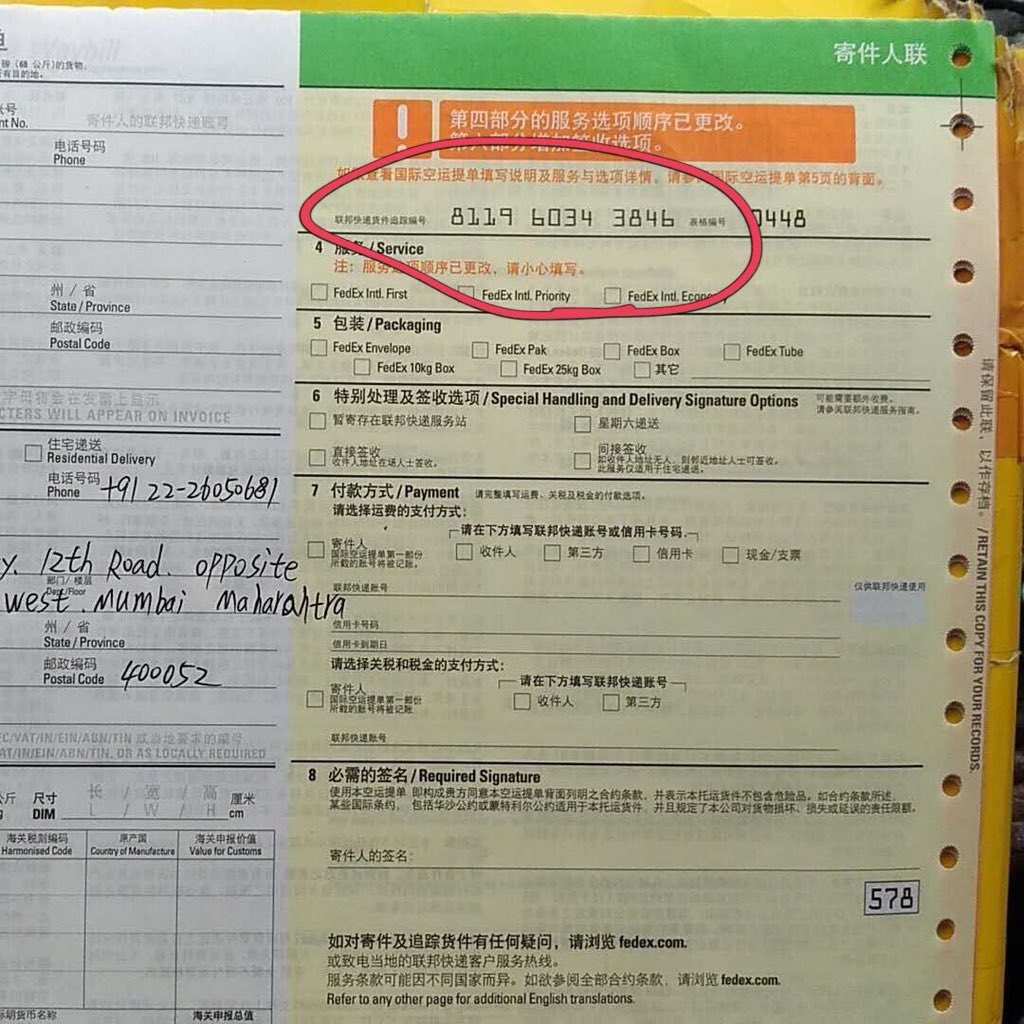 单
磅 (68 公斤)的货物,
所有目的地。
账号
nt No.
寄件人的联邦快递账号
电话号码
Phone
州 / 省
State / Province
邮政编码
Postal Code
字母将会在发票上显示
CTERS WILL APPEAR ON INVOICE
住宅递送
Residential Delivery
电话号码
Phone
+91 22-26050681
y. 12th Road. opposite
部门/ 楼层
Dept./Floor
west. Mumbai Maharahtra
州 / 省
State / Province
邮政编码
Postal Code
400052
EC/VAT/IN/EIN/ABN/TIN 或当地要求的编号
AT/IN/EIN/ABN/TIN, OR AS LOCALLY REQUIRED
公斤 尺寸 长 / 宽 / 高 厘米
g DIM L / W / H cm
海关税则编码 原产国 海关申报价值
Harmonised Code Country of Manufacture Value for Customs
标明货币名称 海关申报总值
寄件人联
第四部分的服务选项顺序已更改。
第六部分增加签收选项。
查看国际空运提单填写说明及服务与选项详情, 请参阅国际空运提单第5页的背面。
联邦快递货件追踪编号 8119 6034 3846 表格编号 0448
4 服务/Service
注: 服务选项顺序已更改, 请小心填写。
FedEx Intl. First FedEx Intl. Priority FedEx Intl. Economy
5 包装/Packaging
FedEx Envelope FedEx Pak FedEx Box FedEx Tube
FedEx 10kg Box FedEx 25kg Box 其它
6 特别处理及签收选项/Special Handling and Delivery Signature Options
可能需要额外收费。
请参阅联邦快递服务指南。
暂寄存在联邦快递服务站 星期六递送
直接签收
收件人地址在场人士签收。
间接签收
如收件人地址无人, 则邻近地址人士可签收。
此服务仅适用于住宅递送。
7 付款方式/Payment 请完整填写运费、关税及税金的付款选项。
请选择运费的支付方式:
请在下方填写联邦快递账号或信用卡号码
寄件人
国际空运提单第一部份
所载的账号将被记账。
收件人 第三方 信用卡 现金/支票
联邦快递账号
仅供联邦快递使用
信用卡号码
信用卡到期日
请选择关税和税金的支付方式:
请在下方填写联邦快递账号
寄件人
国际空运提单第一部份
所载的账号将被记账
收件人 第三方
联邦快递账号
8 必需的签名/Required Signature
使用本空运提单 即构成贵方同意本空运提单背面列明之合约条款, 并表示本托运货件不包含危险品。如合约条款所述,
某些国际条约, 包括华沙公约或蒙特利尔公约适用于本托运货件, 并且规定了本公司对货物损坏、损失或延误的责任限额。
寄件人的签名:
578
如对寄件及追踪货件有任何疑问, 请浏览 fedex.com.
或致电当地的联邦快递客户服务热线。
服务条款可能因不同国家而异。如欲参阅全部合约条款, 请浏览 fedex.com.
Refer to any other page for additional English translations.
请保留此联, 以作存档。/RETAIN THIS COPY FOR YOUR RECORDS.